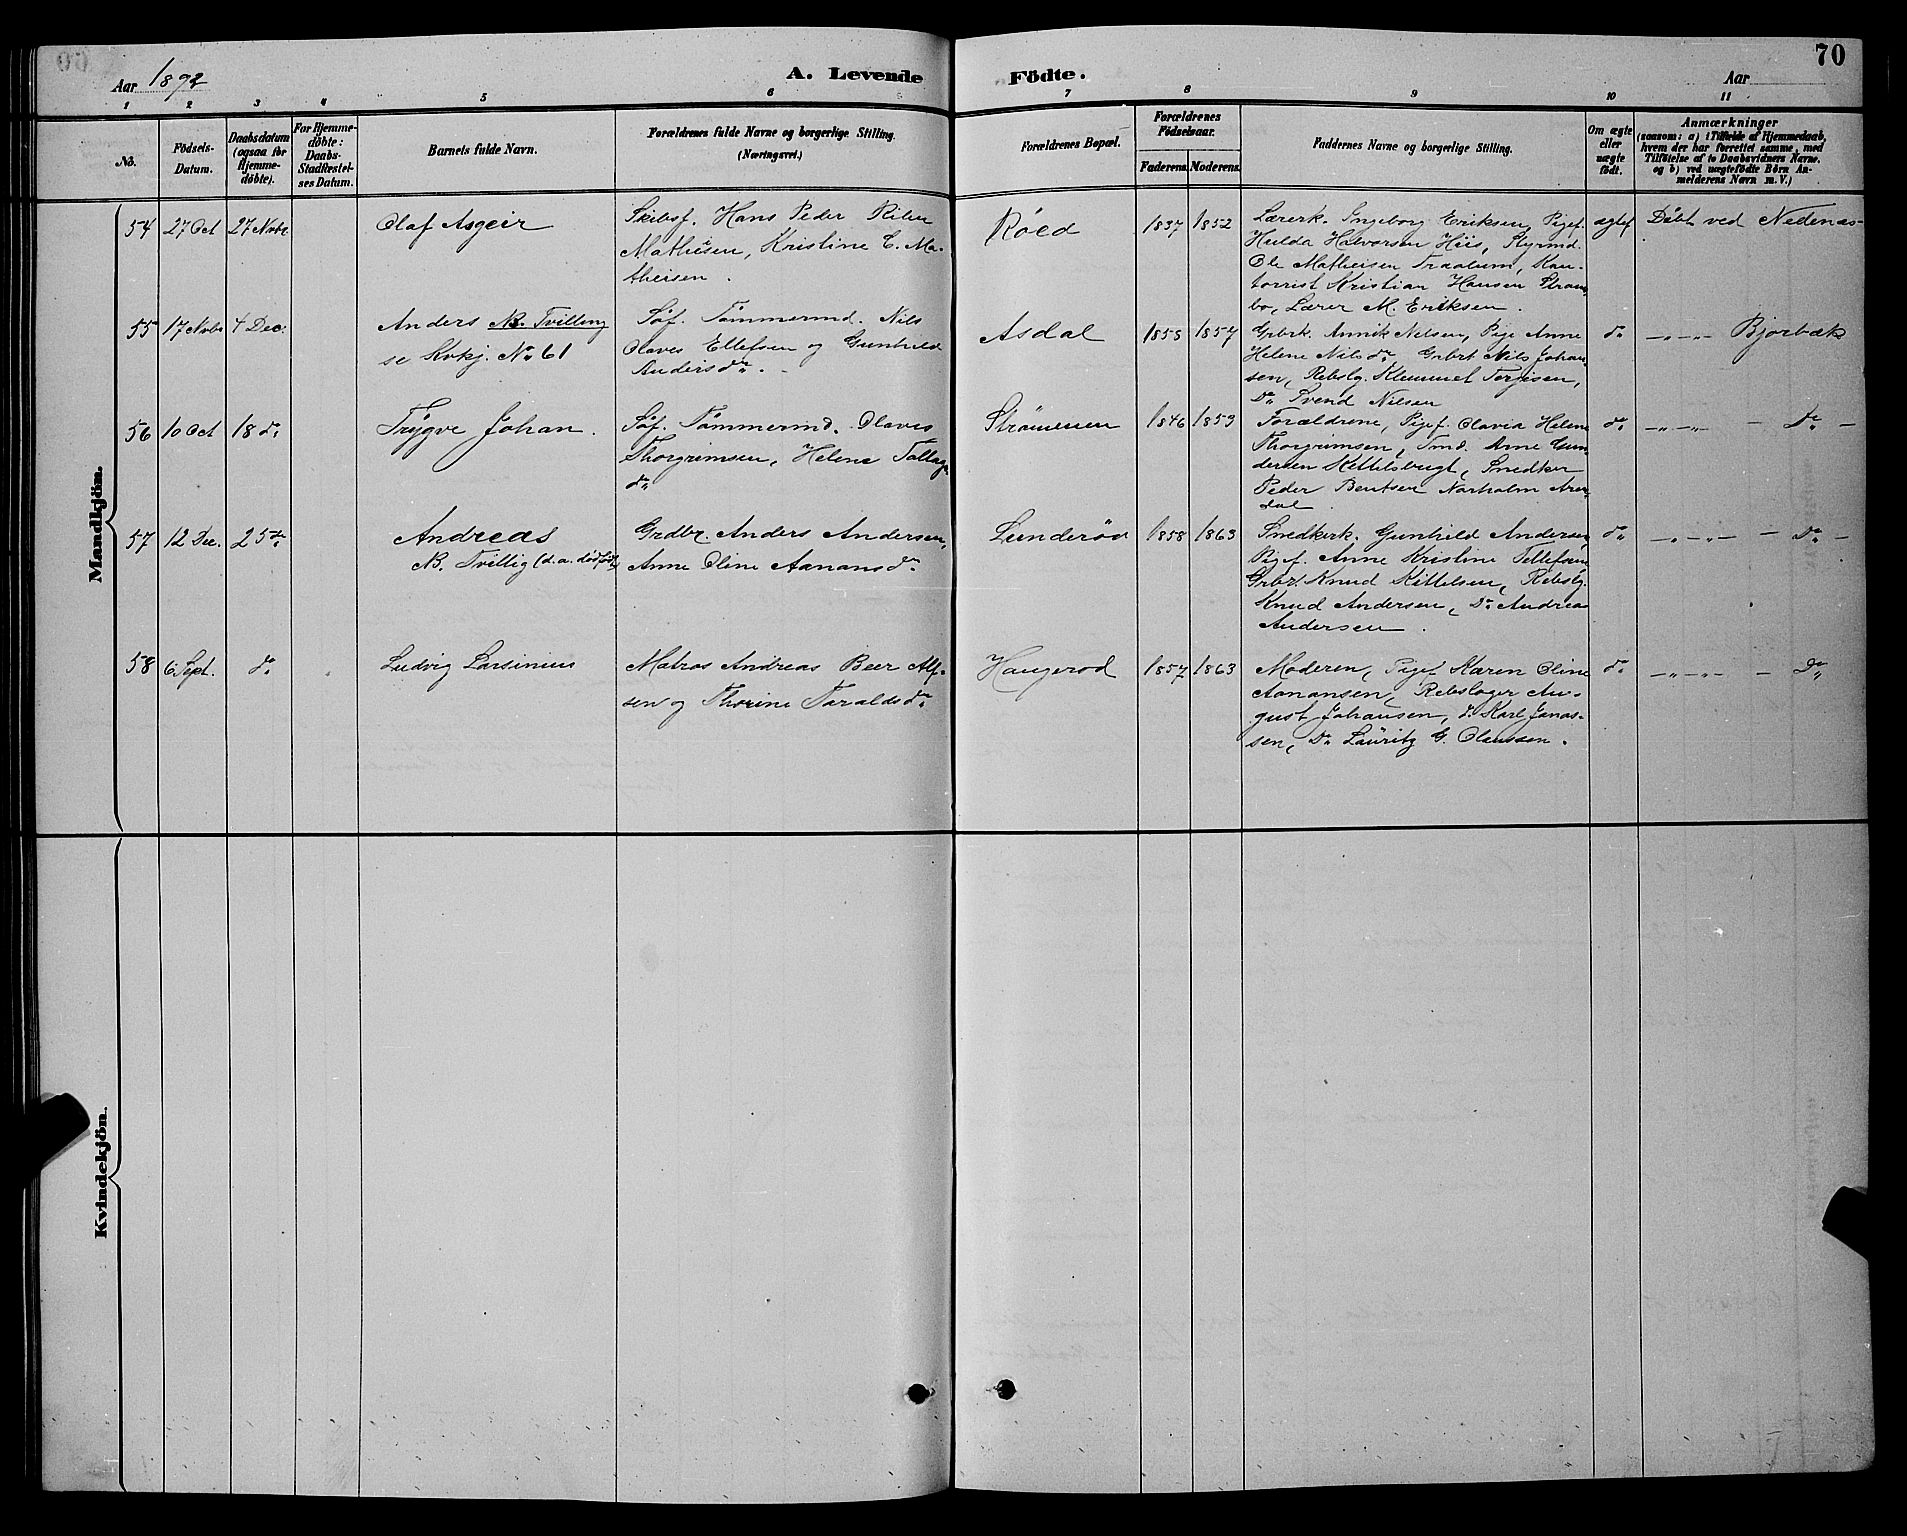 70
Aar 1892
A. Levende Födte.
Aar
1 2 3 4 5 6 7 8 9 10 11
No.
Födsels-
Datum.
Daabsdatum
(ogsaa for
Hjemme-
döbte).
For Hjemme-
döbte:
Daabs-
Stadfæstel-
ses Datum.
Barnets fulde Navn.
Forældrenes fulde Navne og borgerlige Stilling.
(Næringsvei.)
Forældrenes Bopæl.
Forældrenes
Födselsaar.
Faderens. Moderens.
Faddernes Navne og borgerlige Stilling.
Om ægte
eller
uægte
födt.
Anmærkninger
(saasom: a) i Tilfælde af Hjemmedaab,
hvem der har forrettet samme, med
Tilföielse af to Daabsvidners Navne.
og b) ved uægtefödte Börn An-
melderens Navn m. V.)
Mandkjön.
54 27 Oct 27 Novbr
Olaf Asgeir
Skibsf. Hans Peder
Mathisen, Kristine E. Ma-
theisen.
Röed
1837 1852
Lærerk. Ingeborg Eriksen, Pigef.
Hulda Halvorsen Hiis, Styrmd.
Ole Matheisen Kon-
torrist Kristian Hansen
bo, Lærer M. Eriksen.
ægtef
Döbt ved Nedenæs-
55 17 Novbr 4 Dec.
Anders NB. Tvilling
se Kvkj. No 61
Söf. Tömmermd. Nils
Olaves Ellefsen og Gunhild
Andersdr. -
Asdal
1853 1857
Grbrk. Annik Nelsen, Pige Anne
Helene Nilsdr. Grbrt Nils Johan-
sen, Rebslg. Klemmet Terjisen,
Do Svend Nilsen
do
-"-"- Bjorbæk
56 10 Oct 18 do
Trygve Johan.
Söf. Tömmermd. Olaves
Thorgrimsen, Helene
dr
Strömmen
1846 1853
Forældrene, Pigef. Olavia Helene
Thorgrimsen, Tmd. Arne Gun
dersen Kittelsbugt, Snedker
Peder Bentsen Norholm Aren
dal.
do
-"-"- - Do -
57 12 Dec. 25 do
Andreas
NB. Tvillig (d. a. dödfödt)
Grdbr. Anders Andersen,
Anne Oline Aanonsdr
Lunderöd
1858 1863
Snedkerk. Gunhild Andersen
Pigef. Anne Kristine Tellefsen
Grbr. Knud Kittelsen, Rebslg.
Knud Andersen, Do Andreas
Andersen.
do
-"-"- - Do -
58 6 Sept. do
Ludvig Larsinius
Matros Andreas Beer Alf-
sen og Thorine Taraldsdr
Haugerod
1857 1863
Moderen, Pigef Karen Oline
Aanonsen, Rebslager Au-
gust Johansen, do Karl Jonas-
sen, Do Lauritz G. Olaussen.
do
-"-"- - Do
Kvindekjön.